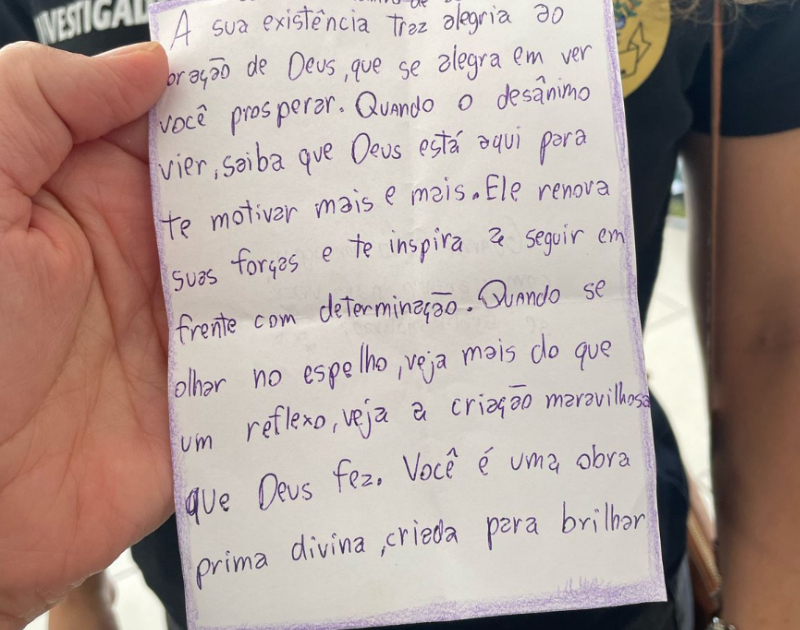 INVESTIGAD
de
A sua existência traz alegria ao
oração de Deus, que se alegra em ver
você prosperar. Quando o desânimo
vier, saiba que Deus está aqui para
te motivar mais e mais. Ele renova
suas forças e te inspira a seguir em
frente com determinação. Quando se
olhar no espelho, veja mais do que
um reflexo, veja a criação maravilhosa
que Deus fez. Você é uma obra
prima divina, criada para brilhar